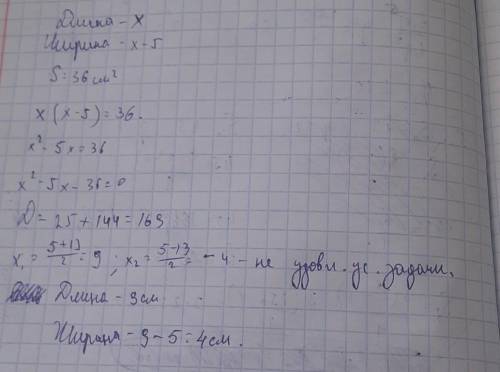 Длина - x
Ширина - x-5
S = 36 см²
x(x-5) = 36.
x² - 5x = 36
x² - 5x - 36 = 0
D = 25 + 144 = 169
x₁ = (5+13)/2 = 9 ; x₂ = (5-13)/2 = -4 - не удовл. ус. задачи.
Длина - 9 см
Ширина - 9 - 5 = 4 см.